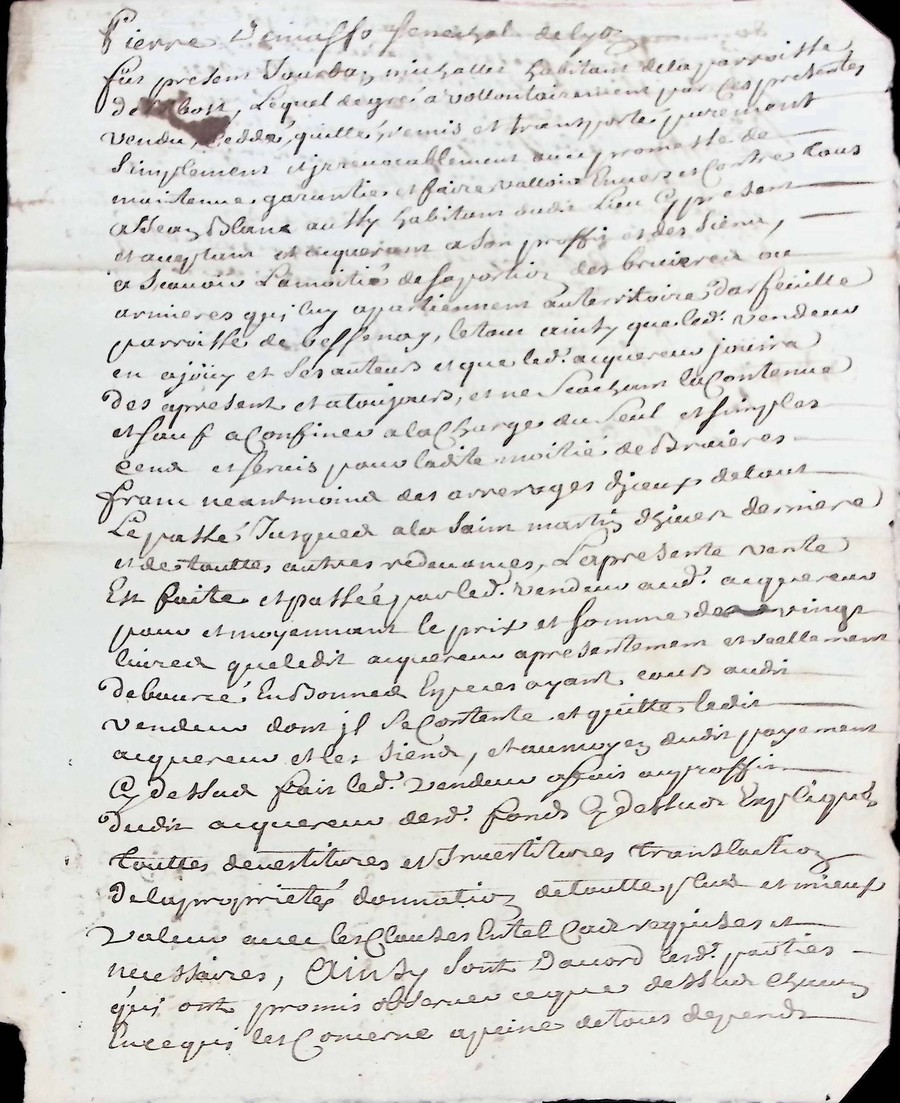 Pierre Demasso senechal de lyon
fut present Jourdan michallet habitant de la parroisse
de lequel de gré a vollontairement par ces presentes
vendu, ceddé, quitté, remis et transporté purement
simplement et jrrevocablement avec promesse de
maintenue garantie et faire valloir Envers et Contre tous
a Jean Blanc aussy habitant dudit lieu Cy present
et aceptant et acquerant a son proffit et des siens,
a scauoir La moitié de sa portion des bruieres ou
armieres qui luy apartiennent au territoire d'arfeüille
parroisse de bessenay, le tout ainsy que led. vendeur
en a joüy et ses auteurs et que led. acquereur joüira
des apresent et a toujours, et ne scachant la Contenue
et sauf a Confiner a la Charge du seul et simples
cens et servis pour ladite moitié de Bruieres
franc neantmoins des arrerages d'jceux de tout
Le passé Jusques a la saint martin d'hiver derniere
et de touttes autres redevances, La presente vente
Est faite et passée par led. vendeur aud. acquereur
pour et moyennant le prix et somme de vingt
livres que ledit acquereur a presentement et reellement
deboursé En Bonnes Especes ayant cours audit
vendeur dont jl se Contente et quitte ledit
acquereur et les siens, et au moyen dudit payement
Cy dessus fait led. vendeur a fait au proffit
dudit acquereur desd. fonds Cy dessus Expliqués
touttes devestitures et Jnvestitures translaction
de la proprieté donnation de toutte plus et mieux
valeur avec les Clauses En tel Cas requises et
necessaires, Ainsy sont D'acord lesd. parties
qui ont promis observer ce que dessus Chacun
En ce qui les Concerne a peine de tous depends